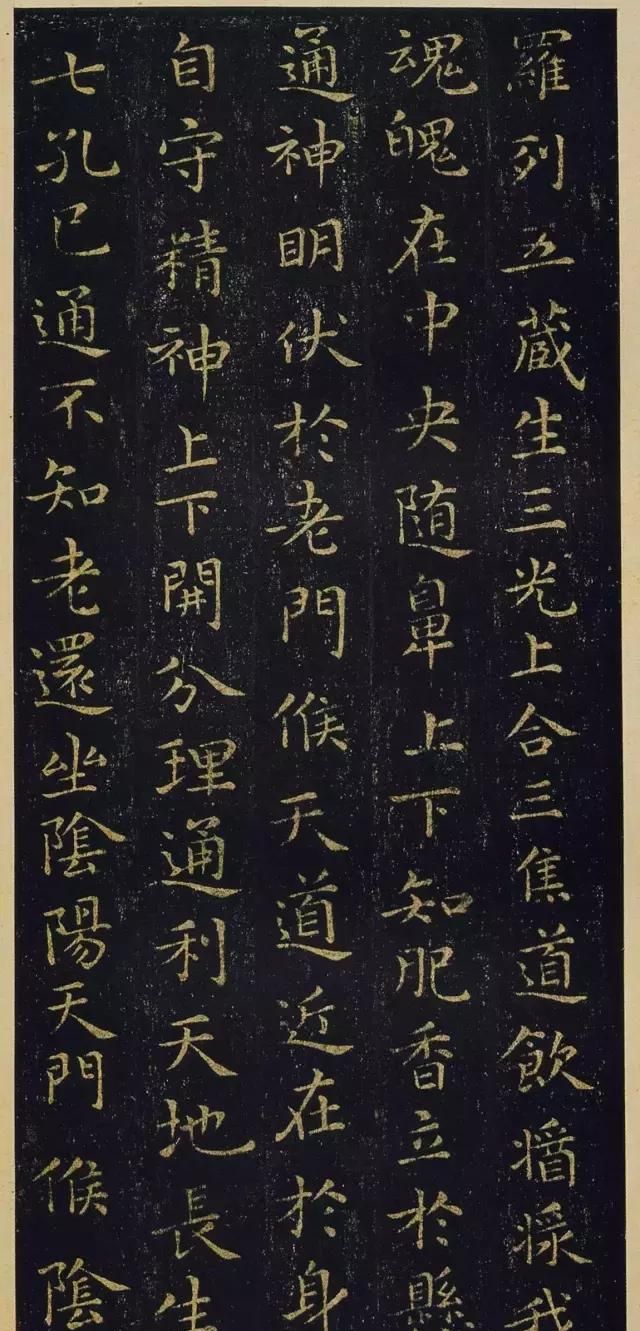 羅列五蔵生三光上合三焦道飲醬漿我
魂魄在中央随鼻上下知肥香立於縣
通神眀伏於老門候天道近在於身
自守精神上下開分理通利天地長生
七孔已通不知老還坐陰陽天門候陰